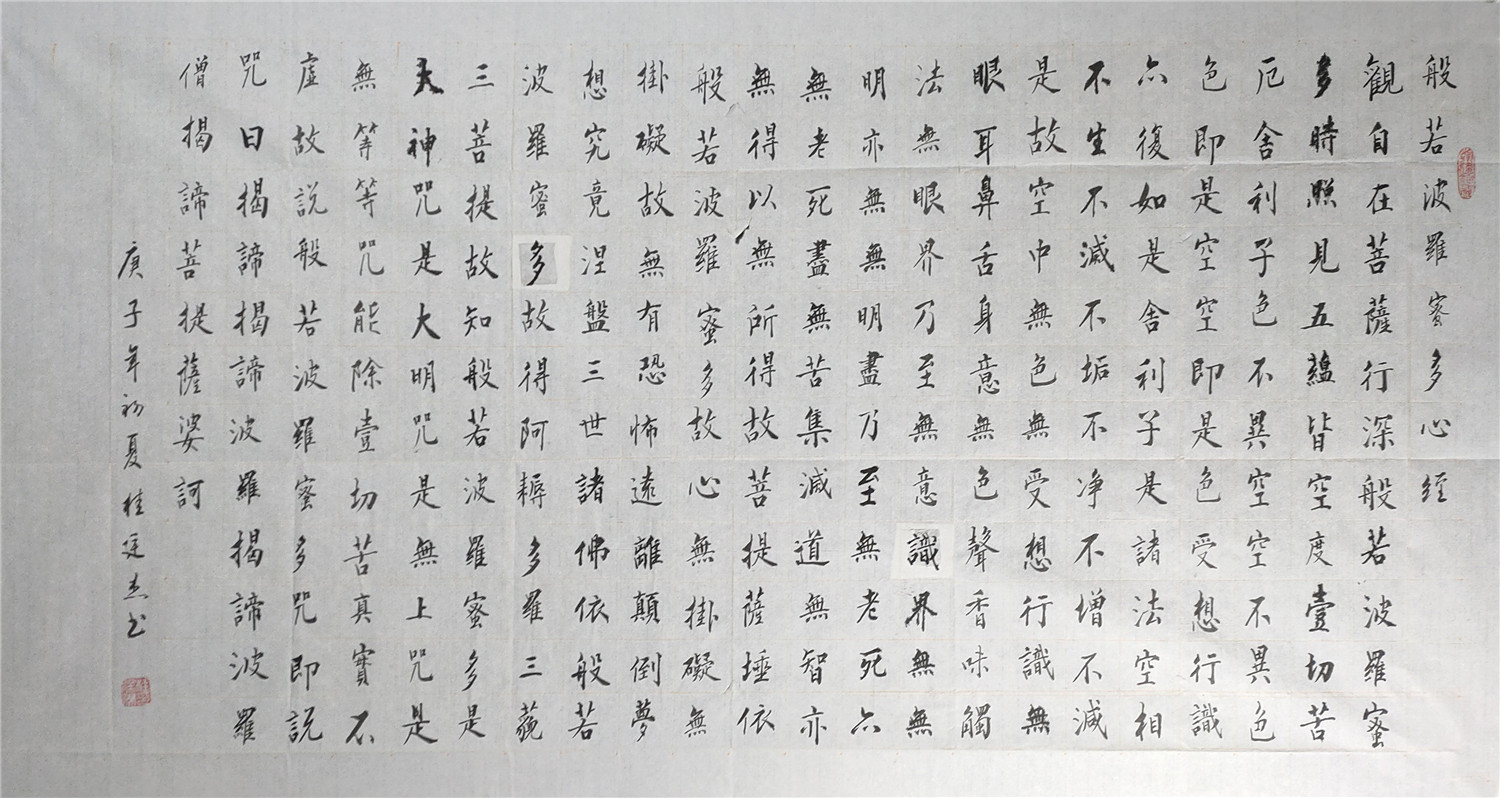 般若波羅蜜多心經
觀自在菩薩行深般若波羅蜜
多時照見五蘊皆空度壹切苦
厄舍利子色不異空空不異色
色即是空空即是色受想行識
亦復如是舍利子是諸法空相
不生不滅不垢不净不增不減
是故空中無色無受想行識無
眼耳鼻舌身意無色聲香味觸
法無眼界乃至無意識界無無
明亦無無明盡乃至無老死亦
無老死盡無苦集滅道無智亦
無得以無所得故菩提薩埵依
般若波羅蜜多故心無掛礙無
掛礙故無有恐怖遠離顛倒夢
想究竟涅盤三世諸佛依般若
波羅蜜多故得阿耨多羅三藐
三菩提故知般若波羅蜜多是
大神咒是大明咒是無上咒是
無等等咒能除壹切苦真實不
虛故説般若波羅蜜多咒即説
咒曰揭諦揭諦波羅揭諦波羅
僧揭諦菩提薩婆訶
庚子年初夏桂廷杰书